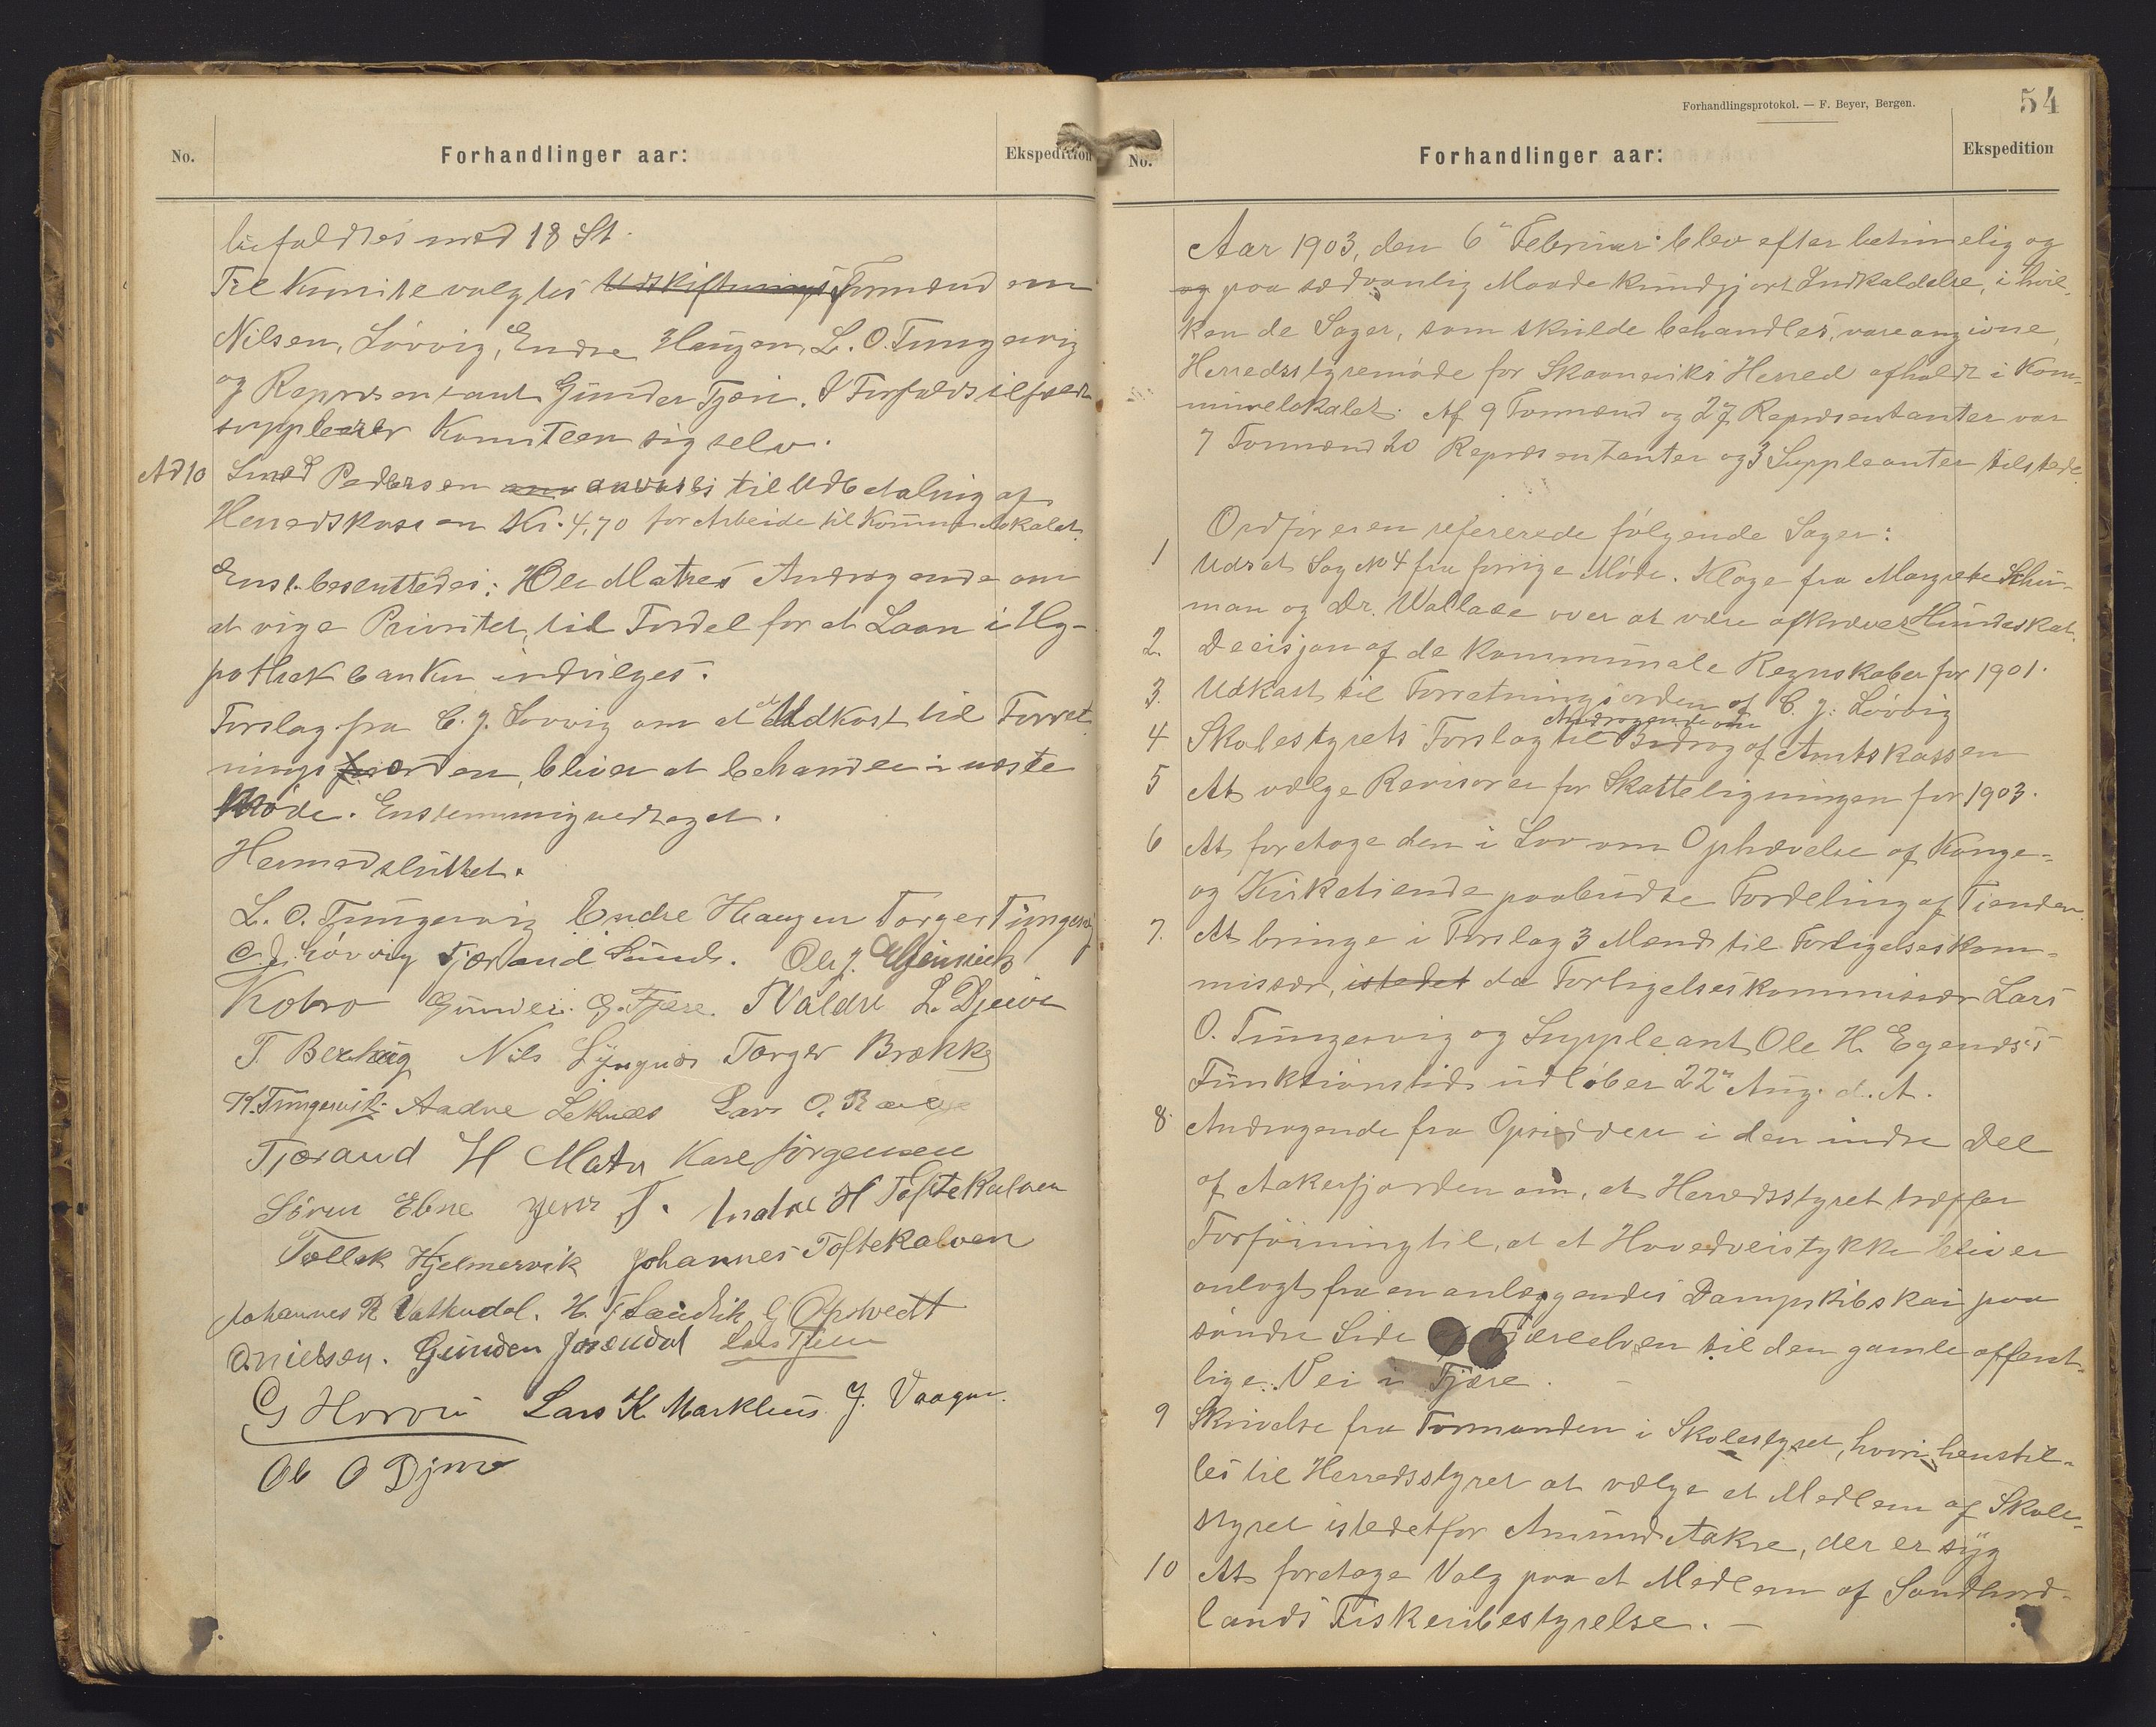 No.
Forhandlinger aar:
Ekspedition
bifaldtes med 18 St.
Til Komite valgtes Udskiftnings Formænd om
Nilsen, Løvvig, Endre Haugen, L. O. Tungesvig
og Repræsentant Gunder Tjæri. I Forfaldstilfælde
supplerer Komiteen sig selv.
Ad 10 Smed Pedersen anvistes til Udbetaling af
Herredskassen Kr. 4,70 for Arbeide til Kommunelokalet.
Enst. besluttedes: H Ole Matres Andragende om
at vige Prioritet, til Fordel for et Laan i Hy-
pothekbanken indvilges.
Forslag fra C. J. Løvvig om at et Udkast til Forret-
ningsorden bliver at behandle i næste
Møde. Enstemmig vedtaget.
Hermed sluttet.
L. O. Tungesvig Endre Haugen Torger Tungesvig
C. J. Løvvig Tjæraand Sunde. Ole J.
Kobro Gunder G. Fjære. T Valdre L. Djeive
T. Berhaug Nils Lyngnæs Torger Brække
K. Tungesvik Aadne Leknæs Lars O.
Tjæraand H Matre Kare Jørgensen
Søren Ebne Jens T. Andre H Toftekalven
Tollek Hjelmervik Johannes Toftekalven
Johannes R Vatnedal. H. T. Landvik G Opsvedt
O. Nielsen. Gunder Jøsendal Lars Fjære
G Horvei Lars K Markhus J. Vaagen.
Ole O Djuve
Forhandlingsprotokol. — F. Beyer, Bergen.
54
No.
Forhandlinger aar:
Ekspedition
Aar 1903, den 6te Februar blev efter betimelig og
og paa sædvanlig Maade kundgjort Indkaldelse, i hvil-
ken de Sager, som skulde behandles, vare angivne,
Herredsstyremøde for Skaaneviks Herred afholdt i Kom-
munelokalet. Af 9 Formænd og 27 Repræsentanter var
7 Formænd 20 Repræsentanter og 3 Suppleanter tilstede.
Ordføreren refererede følgende Sager:
1 Udsat Sag No 4 fra forrige Møde. Klage fra Margrete Schu-
man og Dr. Wallase over at være afkrævet Hundeskat.
2. Decisjon af de kommunale Regnskaber for 1901.
3. Udkast til Forretningsorden af C. J. Løvvig
Andragende om
4 Skolestyrets Forslag til Bidrag af Amtskassen
5 At vælge Revisorer for Skatteligningen for 1903.
6 At foretage den i Lov om Ophævelse af Konge-
og Kirketiende paabudte Fordeling af Tienden.
7. At bringe i Forslag 3 Mænd til Forligelseskom-
missær, istedet da Forligelseskommissær Lars
O. Tungesvig og Suppleant Ole H. Egenæs's
Funktionstid udløber 22de Aug. d. A.
8 Andragende fra Opsiddere i den indre Del
af Aakerfjorden om, at Herredsstyret træffer
Forføining til, at et Hovedveistykke bliver
anlagt fra en anlæggendes Dampskibskai paa
søndre Side af Fjæreelven til den gamle offent-
lige Vei i Fjære.
9 Skrivelse fra Formanden i Skolestyret, hvori henstil-
les til Herredsstyret at vælge et Medlem af Skole-
styret istedetfor Amund Aakre, der er syg
10 At foretage Valg paa et Medlem af Søndhord-
lands Fiskeribestyrelse. —